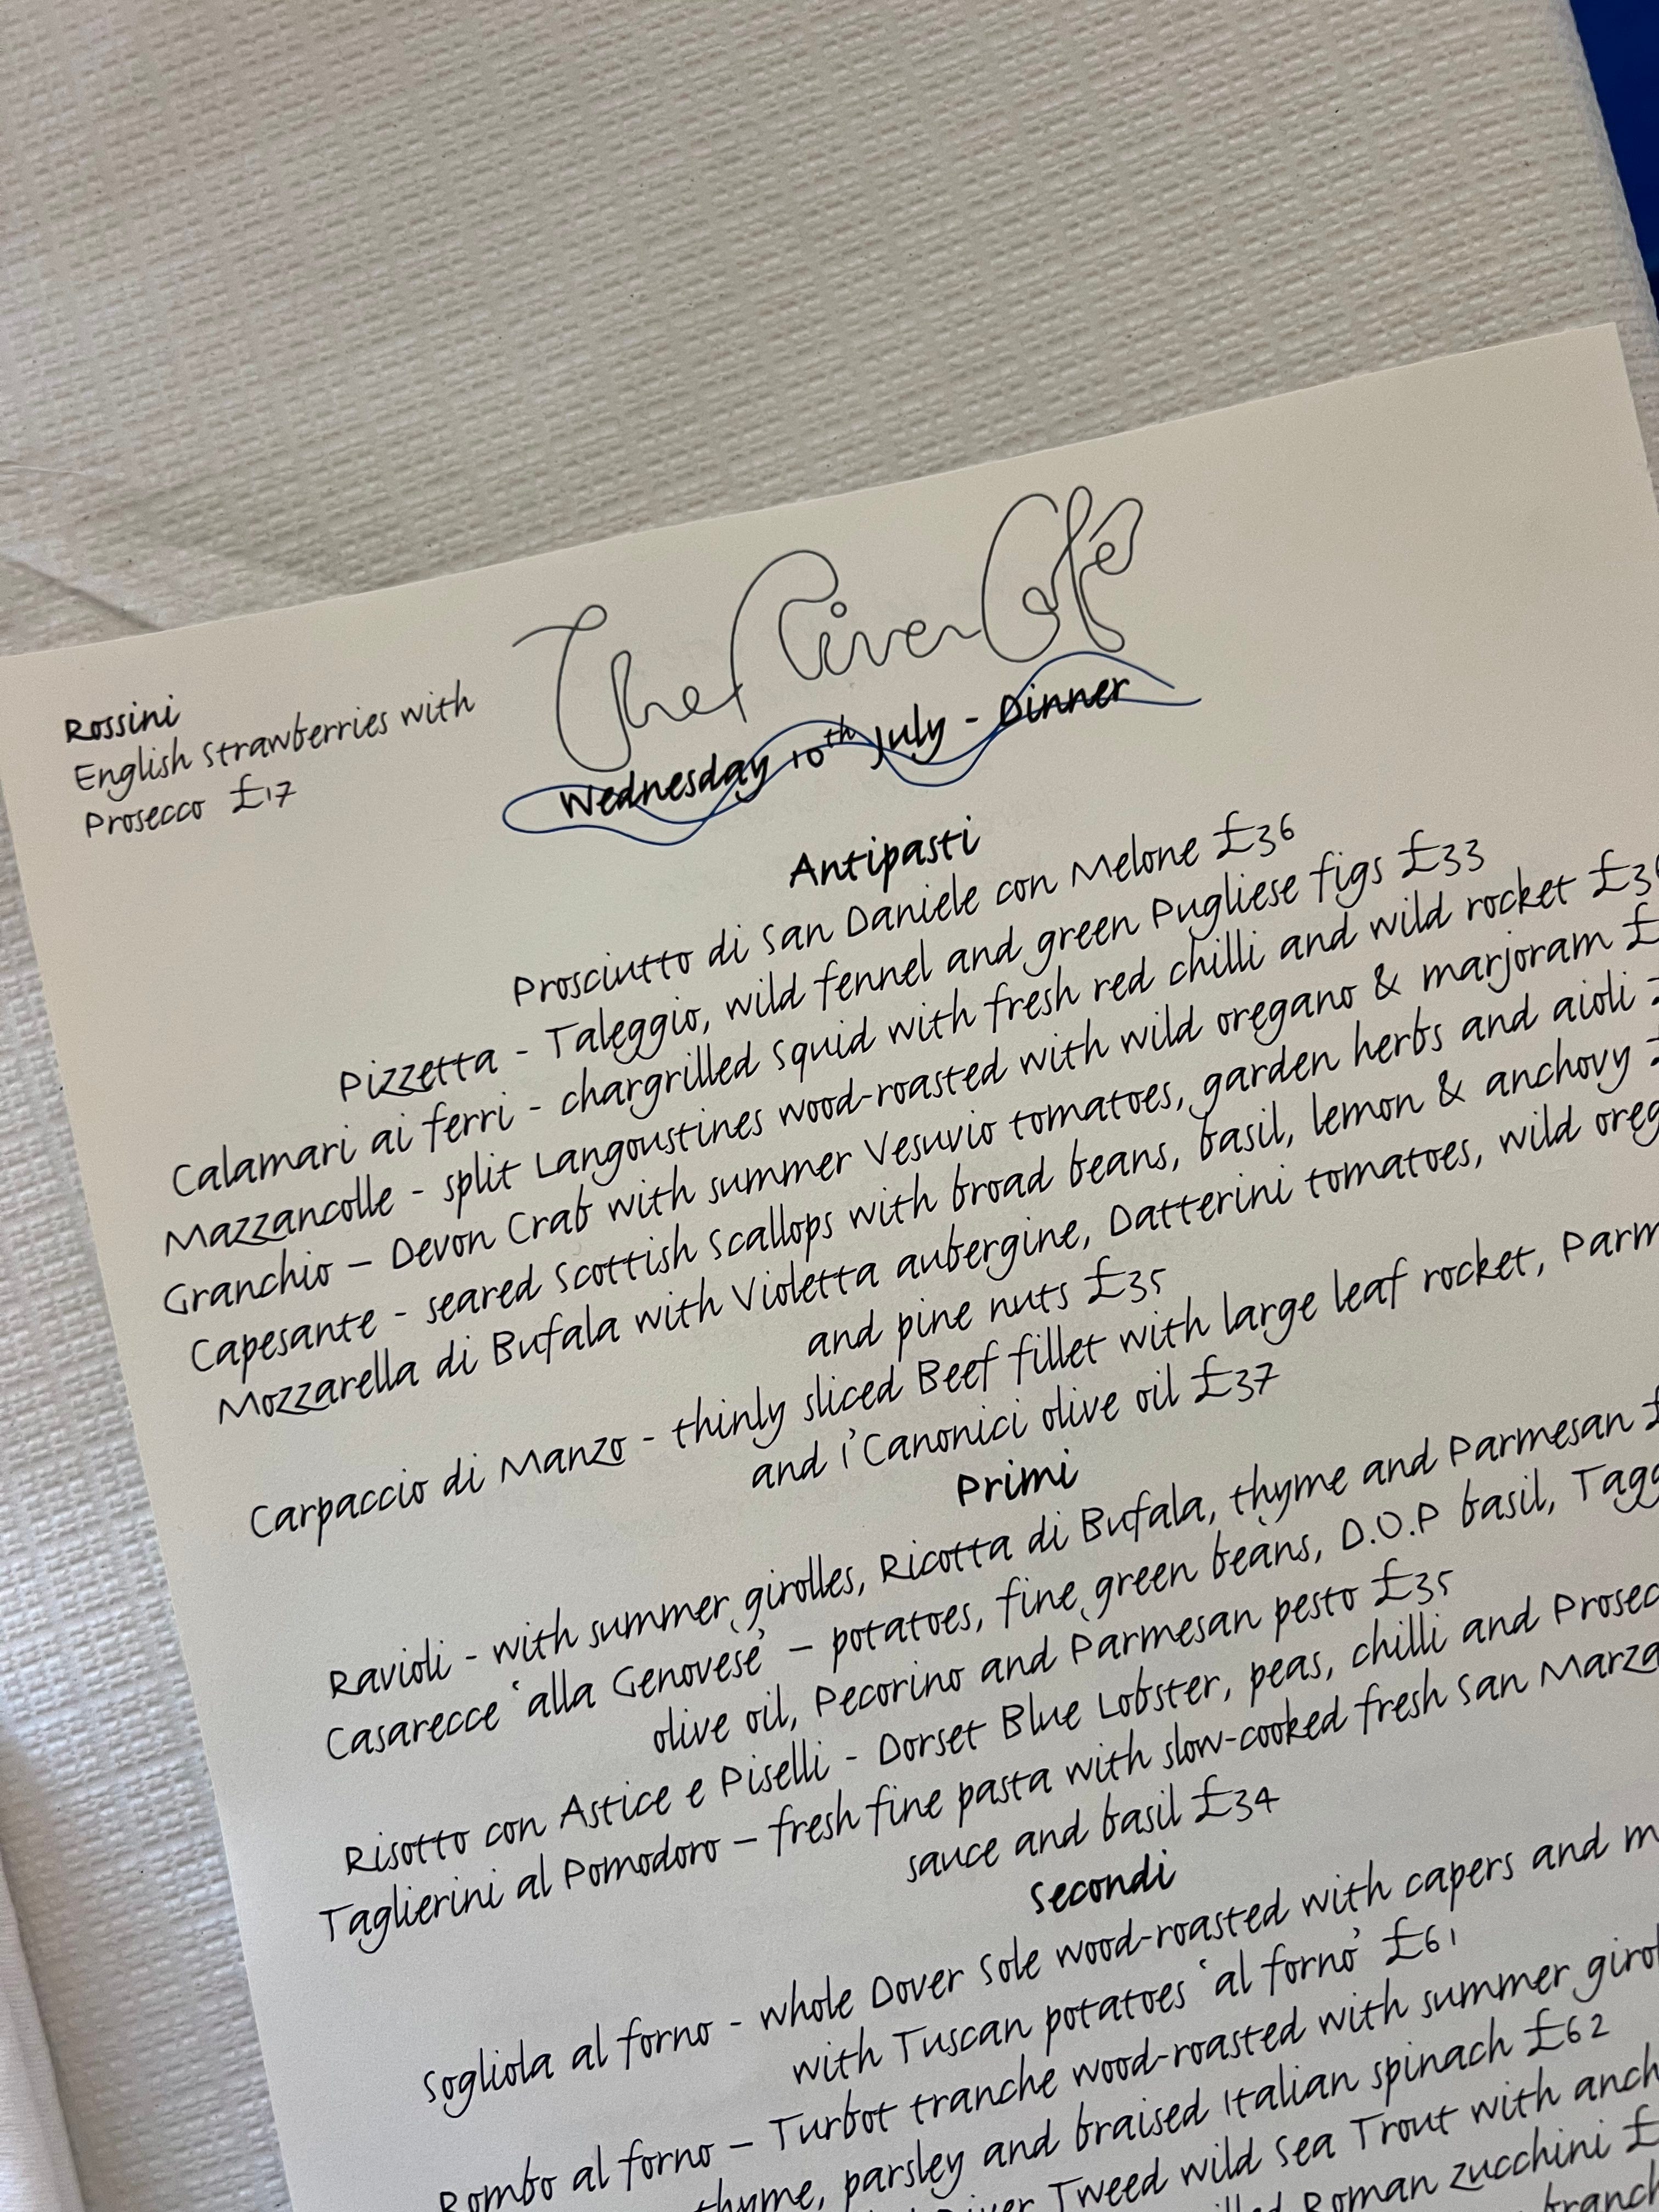 The River Café
Wednesday 10th July - Dinner
Rossini
English Strawberries with
Prosecco £17
Antipasti
Prosciutto di San Daniele con Melone £36
Pizzetta - Taleggio, wild fennel and green Pugliese figs £33
Calamari ai ferri - chargrilled Squid with fresh red chilli and wild rocket
Mazzancolle - split Langoustines wood-roasted with wild oregano & marjoram £
Granchio – Devon Crab with summer Vesuvio tomatoes, garden herbs and aioli
Capesante - seared Scottish Scallops with broad beans, basil, lemon & anchovy
Mozzarella di Bufala with Violetta aubergine, Datterini tomatoes, wild
and pine nuts £35
Carpaccio di Manzo - thinly sliced Beef fillet with large leaf rocket,
and I'Canonici olive oil £37
Primi
Ravioli - with summer girolles, Ricotta di Bufala, thyme and Parmesan £
Casarecce 'alla Genovese' – potatoes, fine green beans, D.O.P basil,
olive oil, Pecorino and Parmesan pesto £35
Risotto con Astice e Piselli - Dorset Blue Lobster, peas, chilli and
Taglierini al Pomodoro – fresh fine pasta with slow-cooked fresh San
sauce and basil £34
Secondi
Sogliola al forno - whole Dover Sole wood-roasted with capers and
with Tuscan potatoes 'al forno' £61
Rombo al forno – Turbot tranche wood-roasted with summer
thyme, parsley and braised Italian spinach £62
River Tweed wild Sea Trout with
Roman zucchini £